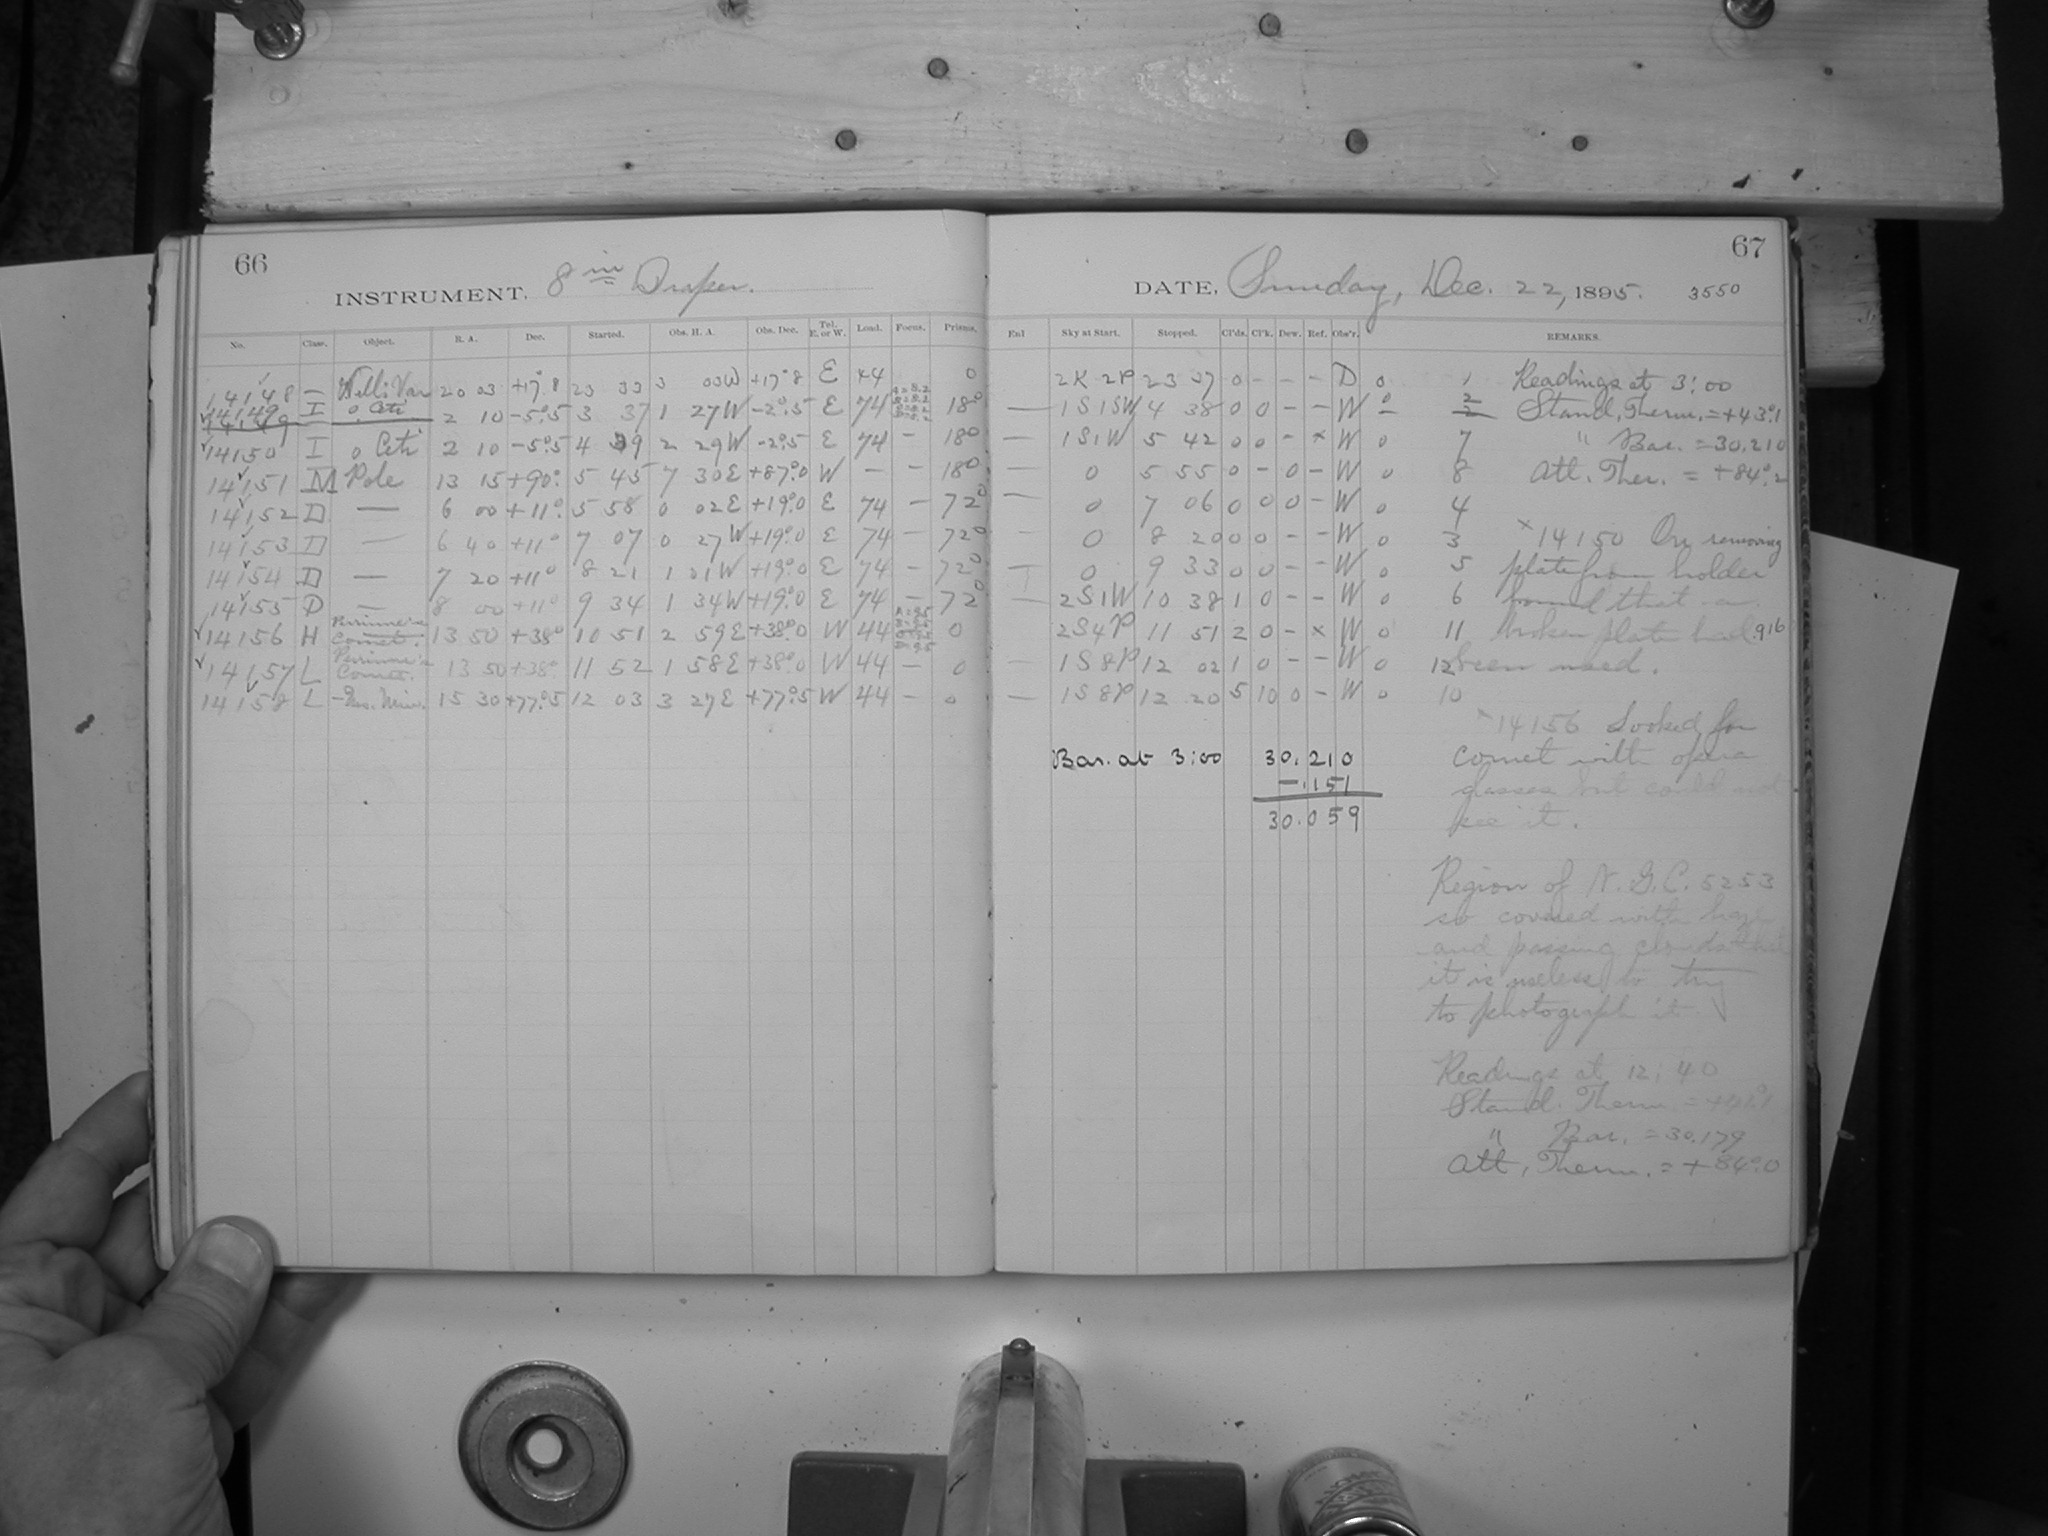 66
INSTRUMENT, 8 in Draper.
No. Class. Object. R. A. Dec. Started. Obs. H. A. Obs. Dec. Tel. E. or W. Load. Focus. Prisms.
14148 — Wells Var 20 03 +17°8 23 33 3 03W +17°8 E 44 0
14149 I o Ceti 2 10 -5°5 3 37 1 27W -2°5 E 74 18°
14150 I o Ceti 2 10 -5°5 4 39 2 29W -2°5 E 74 — 18°
14151 M Pole 13 15 +90° 5 45 7 30E +87°0 W — — 18°
14152 D — 6 00 +11° 5 58 0 02E +19°0 E 74 — 72°
14153 D — 6 40 +11° 7 07 0 27W +19°0 E 74 — 72°
14154 D — 7 20 +11° 8 21 1 01W +19°0 E 74 — 72°
14155 D — 8 00 +11° 9 34 1 34W +19°0 E 74 — 72°
14156 H Perrine's Comet. 13 50 +38° 10 51 2 59E +38°0 W 44 0
14157 L Perrine's Comet. 13 50 +38° 11 52 1 58E +38°0 W 44 — 0
14158 L Urs. Min. 15 30 +77°5 12 03 3 27E +77°5 W 44 — 0
67
DATE, Sunday, Dec. 22, 1895. 3550
Enl Sky at Start. Stopped. Cl'ds. Cl'k. Dew. Ref. Obs'r. REMARKS.
2K 2P 23 37 0 - - - D 0 1
— 1S1SW 4 38 0 0 - - W 0 2
— 1S1W 5 42 0 0 - x W 0 7
— 0 5 55 0 - 0 - W 0 8
— 0 7 06 0 0 0 - W 0 4
0 8 20 0 0 - - W 0 3
— 0 9 33 0 0 - - W 0 5
— 2S1W 10 38 1 0 - - W 0 6
2S4P 11 51 2 0 - x W 0 11
— 1S8P 12 02 1 0 - - W 0 12
— 1S8P 12 20 5 10 0 - W 0 10
Bar. at 3:00 30.210
-.151
30.059
Readings at 3:00
Stand. Therm. = +43°1
" Bar. = 30.210
Att. Ther. = +84°2
x 14150 On removing
plate from holder
found that a
broken plate had .916
been used.
x 14156 Looked for
comet with opera
glasses but could not
see it.
Region of N.G.C. 5253
so covered with haze
and passing clouds that
it is useless to try
to photograph it.
Readings at 12:40
Stand. Therm. =
" Bar. = 30.179
Att. Therm. = +84°0